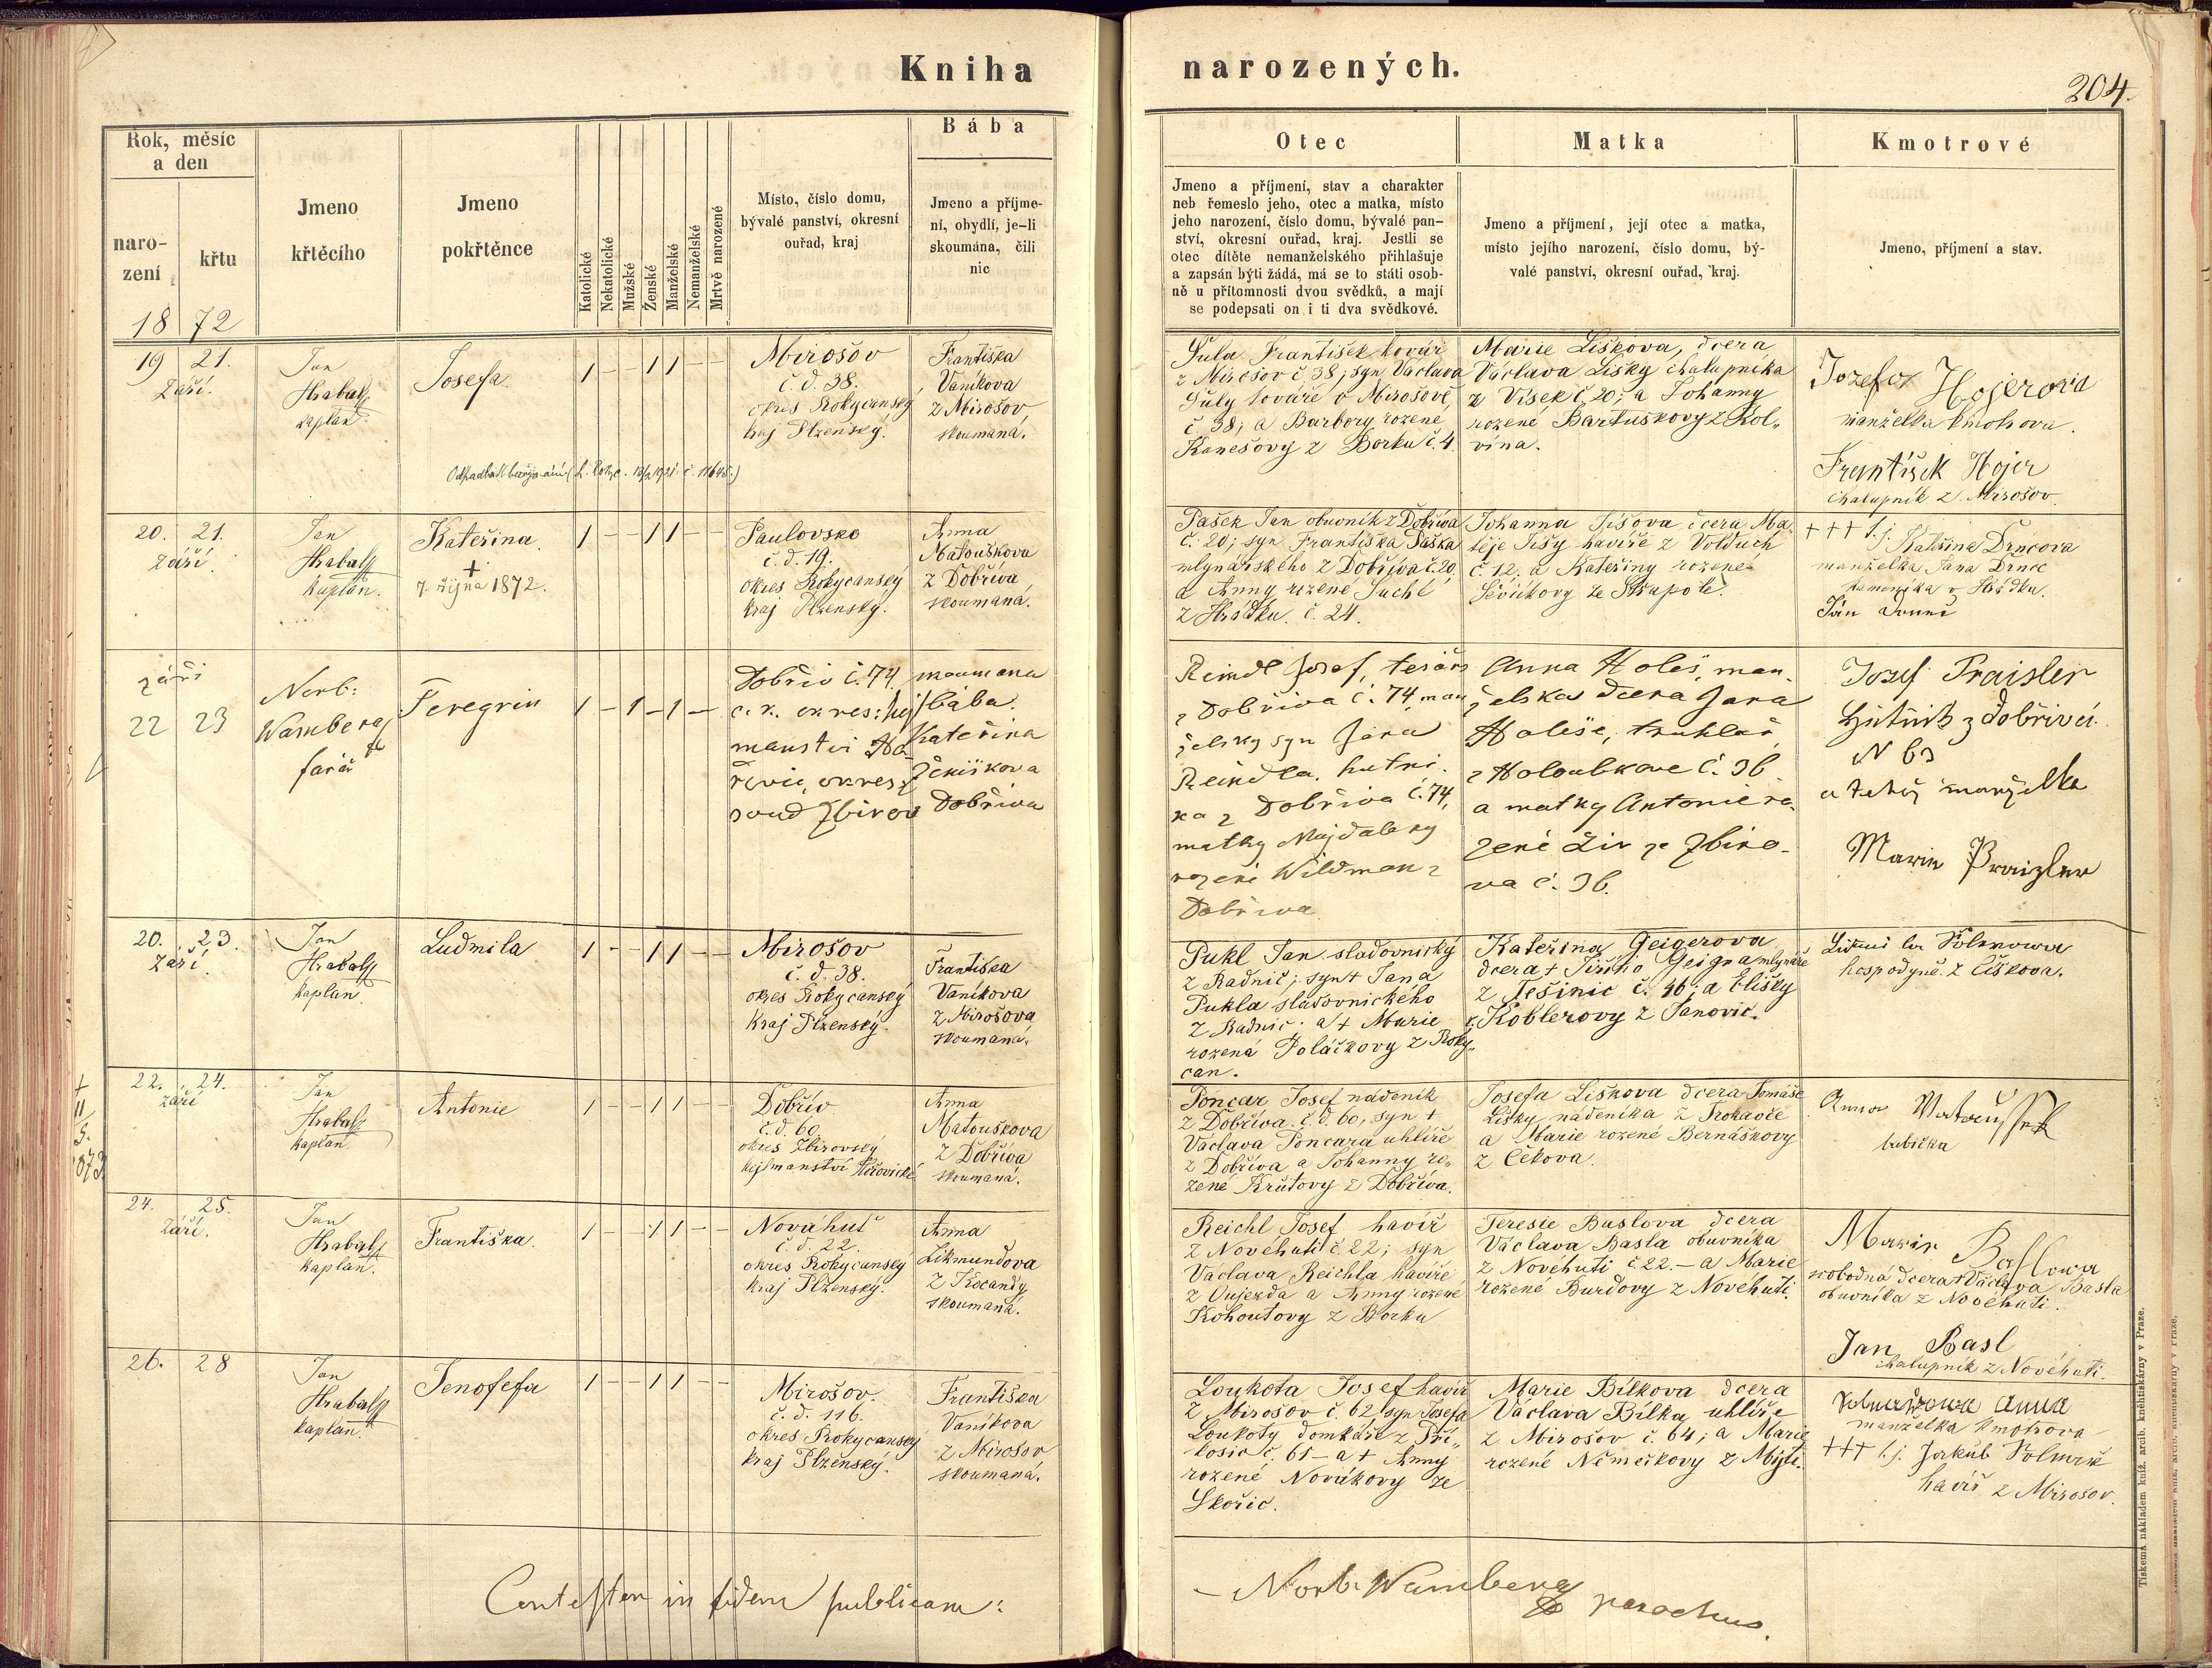 Kniha
narozených.
204.
Rok, měsíc
a den
naro-
zení
křtu
18 72
Jmeno
křtěcího
Jmeno
pokřtěnce
Katolické
Nekatolické
Mužské
Ženské
Manželské
Nemanželské
Mrtvě narozené
Místo, číslo domu,
bývalé panství, okresní
ouřad, kraj
Bába
Jmeno a příjme-
ní, obydlí, je-li
skoumána, čili
nic
Otec
Jmeno a příjmení, stav a charakter
neb řemeslo jeho, otec a matka, místo
jeho narození, číslo domu, bývalé pan-
ství, okresní ouřad, kraj. Jestli se
otec dítěte nemanželského přihlašuje
a zapsán býti žádá, má se to státi osob-
ně u přítomnosti dvou svědků, a mají
se podepsati on i ti dva svědkové.
Matka
Jmeno a příjmení, její otec a matka,
místo jejího narození, číslo domu, bý-
valé panství, okresní ouřad, kraj.
Kmotrové
Jmeno, příjmení a stav.
19 21.
Září.
Jan
Hrabal
kaplan
Josefa.
1 - - 1 1 - -
Mirošov
č. d. 38.
okres Rokycanský
kraj Plzenský.
Františka
Vaníkova
z Mirošov,
skoumaná.
Šula František kovář
z Mirošov č. 38; syn Václava
Šuly kováře v Mirošově
č. 38; a Barbory rozené
Kanešovy z Borku č. 4.
Marie Liškova, dcera
Václava Lišky chalupníka
z Vísek č. 20; a Johanny
rozené Bartuškovy z Kol-
vína.
Jozefa Hojerova
manželka kmotrova.
František Hojer
chalupník z Mirošov
20. 21.
Září.
Jan
Hrabal
kaplan.
Kateřina.
+
7. října 1872.
1 - - 1 1 - -
Paulovsko
č. d. 19.
okres Rokycanský
kraj Plzenský.
Anna
Matouškova
z Dobříva
skoumaná.
Pašek Jan obuvník z Dobříva
č. 20; syn Františka Paška
mlynářského z Dobříva č. 20
a Anny rozené Suché
z Hrádku č. 24.
Johanna Jíšova dcera Ma-
těje Jíšy havíře z Volduch
č. 12. a Kateřiny rozené
Ševčíkovy ze Strupole.
+++ t. j. Kateřina Drncova
manželka Jana Drnce
kameníka v Hrádku.
září
22 23
Norb:
Wamberg
farář
Peregrin
1 - 1 - 1 -
Dobřív č. 74.
c. k. okres: hej
manství Ho-
řovic, okres.
soud Zbirov
skoumana
bába.
Kateřina
Ženíškova
Dobříva
Reindl Josef, tesař
z Dobříva č. 74, man
želský syn Jana
Reindla. hutní-
ka z Dobříva č. 74,
matky Majdaleny
rozené Wildman z
Dobříva
Anna Holeš, man-
želska dcera Jana
Holeše, truhlář
z Holoubkova č. 36
a matky Antonie ro-
zené Živ ze Zbiro-
va č. 36.
Josef Praisler
Hutník z Dobřívi
N 63
a tehož manželka
Marie Praizler
20. 23.
Září.
Jan
Hrabal
kaplan.
Ludmila
1 - - 1 1 - -
Mirošov
č. d. 38.
okres Rokycanský
Kraj Plzenský.
Františka
Vaníkova
z Mirošova
skoumaná.
Pukl Jan sladovnický
z Radnic; syn + Jana
Pukla sladovnického
z Radnic a + Marie
rozená Poláčkovy z Roky-
can.
Kateřina Geigerova
dcera + Jiřího Geigra mlynáře
z Těšinic č. 46; a Elišky
r. Koblerovy z Janovic.
hospodyně z Číčkova.
22. 24.
září
Jan
Hrabal
kaplan.
Antonie
1 - - 1 1 - -
Dobřív
č. d. 60.
okres Zbirovský
hejtmanství Hořovické
Anna
Matouškova
z Dobříva
skoumaná.
Poncar Josef nádeník
z Dobříva č. d. 60, syn +
Václava Poncara uhlíře
z Dobříva a Johanny ro-
zené Krutovy z Dobříva.
Josefa Liškova dcera Tomáše
Lišky nádeníka z Trokavce
a Marie rozené Bernáškovy
z Čekova.
Anna Matoussek
babička
24. 25.
Září.
Jan
Hrabal
kaplan.
Františka.
1 - - 1 1 - -
Nováhuť
č. d. 22.
okres Rokycanský
kraj Plzenský.
Anna
Zikmundova
z Kocandy
skoumaná.
Reichl Josef havíř
z Novéhuti č. 22; syn
Václava Reichla havíře
z Oujezda a Anny rozené
Kohoutovy z Borku
Teresie Baslova dcera
Václava Basla obuvníka
z Novéhuti č. 22. - a Marie
rozené Burdovy z Novéhuti.
Marie Baslowa
svobodná dcera + Václava Basla
obuvníka z Novéhuti.
Jan Basl
chalupník z Novéhuti.
26. 28
Jan
Hrabal
kaplan.
Jenofefa
1 - - 1 1 - -
Mirošov.
č. d. 116.
okres Rokycanský
kraj Plzenský.
Františka
Vaníkova
z Mirošov
skoumaná.
Loukota Josef havíř
z Mirošov č. 62, syn Josefa
Loukoty domkáře z Pří-
kosic č. 61 - a + Anny
rozené Novákovy ze
Skořic.
Marie Bílkova dcera
Václava Bílka uhlíře
z Mirošov č. 64; a Marie
rozené Němečkovy z Mýti.
Anna
manželka kmotrova
+++ t. j. Jakub Volmuš
havíř z Mirošov.
Contestor in fidem publicam:
Norb. Wamberg
parochus.
Tiskem a nákladem kníž. arcib. knihtiskárny v Praze.